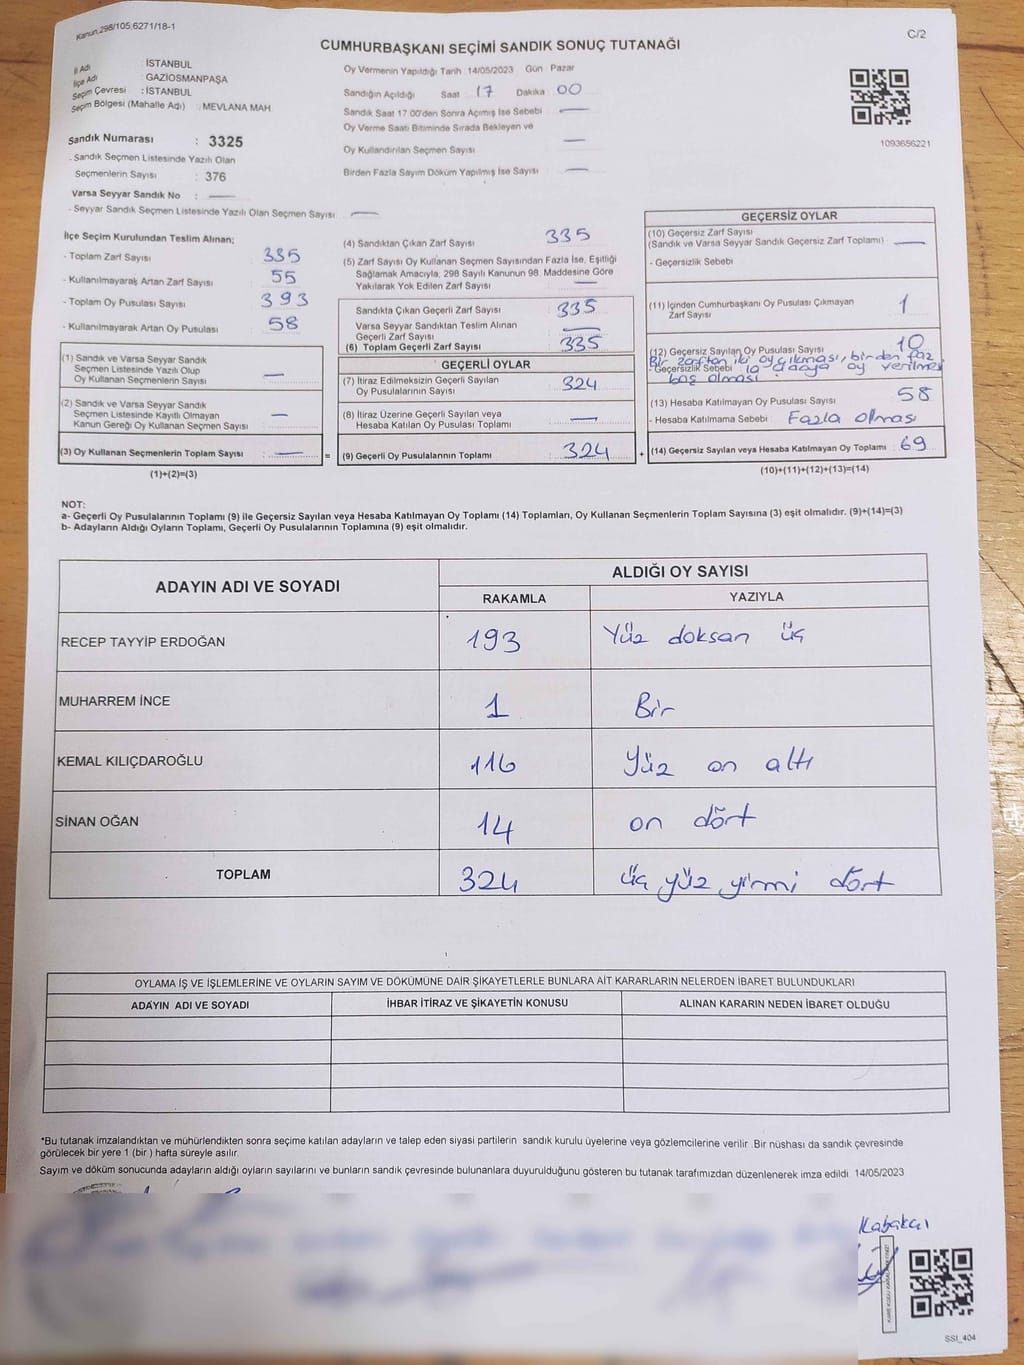 Kanun.298/105,6271/18-1
C/2
CUMHURBAŞKANI SEÇİMİ SANDIK SONUÇ TUTANAĞI
İl Adı İSTANBUL
İlçe Adı GAZİOSMANPAŞA
Seçim Çevresi : İSTANBUL
Seçim Bölgesi (Mahalle Adı) : MEVLANA MAH.
Oy Vermenin Yapıldığı Tarih :14/05/2023 Gün : Pazar
Sandığın Açıldığı Saat 17 Dakika 00
Sandık Saat 17.00'den Sonra Açımış İse Sebebi —
Oy Verme Saati Bitiminde Sırada Bekleyen ve
Oy Kullandırılan Seçmen Sayısı —
Birden Fazla Sayım Döküm Yapılmış İse Sayısı —
1093656221
Sandık Numarası : 3325
- Sandık Seçmen Listesinde Yazılı Olan
Seçmenlerin Sayısı : 376
Varsa Seyyar Sandık No : —
- Seyyar Sandık Seçmen Listesinde Yazılı Olan Seçmen Sayısı —
İlçe Seçim Kurulundan Teslim Alınan;
- Toplam Zarf Sayısı 335
- Kullanılmayarak Artan Zarf Sayısı 55
- Toplam Oy Pusulası Sayısı 393
- Kullanılmayarak Artan Oy Pusulası 58
(1) Sandık ve Varsa Seyyar Sandık
Seçmen Listesinde Yazılı Olup
Oy Kullanan Seçmenlerin Sayısı —
(2) Sandık ve Varsa Seyyar Sandık
Seçmen Listesinde Kayıtlı Olmayan
Kanun Gereği Oy Kullanan Seçmen Sayısı —
(3) Oy Kullanan Seçmenlerin Toplam Sayısı : — =
(1)+(2)=(3)
(4) Sandıktan Çıkan Zarf Sayısı 335
(5) Zarf Sayısı Oy Kullanan Seçmen Sayısından Fazla İse, Eşitliği
Sağlamak Amacıyla, 298 Sayılı Kanunun 98. Maddesine Göre
Yakılarak Yok Edilen Zarf Sayısı —
Sandıkta Çıkan Geçerli Zarf Sayısı : 335
Varsa Seyyar Sandıktan Teslim Alınan
Geçerli Zarf Sayısı —
(6) Toplam Geçerli Zarf Sayısı : 335
GEÇERLİ OYLAR
(7) İtiraz Edilmeksizin Geçerli Sayılan
Oy Pusulalarının Sayısı : 324
(8) İtiraz Üzerine Geçerli Sayılan veya
Hesaba Katılan Oy Pusulası Toplamı : —
(9) Geçerli Oy Pusulalarının Toplamı : 324 +
GEÇERSİZ OYLAR
(10) Geçersiz Zarf Sayısı
(Sandık ve Varsa Seyyar Sandık Geçersiz Zarf Toplamı) —
- Geçersizlik Sebebi
(11) İçinden Cumhurbaşkanı Oy Pusulası Çıkmayan
Zarf Sayısı 1
(12) Geçersiz Sayılan Oy Pusulası Sayısı 10
Bir zarftan iki oy çıkması, birden faz
- Geçersizlik Sebebi la adaya oy verilmesi
boş olması.
(13) Hesaba Katılmayan Oy Pusulası Sayısı 58
- Hesaba Katılmama Sebebi Fazla olması
(14) Geçersiz Sayılan veya Hesaba Katılmayan Oy Toplamı : 69
(10)+(11)+(12)+(13)=(14)
NOT:
a- Geçerli Oy Pusulalarının Toplamı (9) ile Geçersiz Sayılan veya Hesaba Katılmayan Oy Toplamı (14) Toplamları, Oy Kullanan Seçmenlerin Toplam Sayısına (3) eşit olmalıdır. (9)+(14)=(3)
b- Adayların Aldığı Oyların Toplamı, Geçerli Oy Pusulalarının Toplamına (9) eşit olmalıdır.
ADAYIN ADI VE SOYADI ALDIĞI OY SAYISI
RAKAMLA YAZIYLA
RECEP TAYYİP ERDOĞAN 193 Yüz doksan üç
MUHARREM İNCE 1 Bir
KEMAL KILIÇDAROĞLU 116 Yüz on altı
SİNAN OĞAN 14 on dört
TOPLAM 324 üç yüz yirmi dört
OYLAMA İŞ VE İŞLEMLERİNE VE OYLARIN SAYIM VE DÖKÜMÜNE DAİR ŞİKAYETLERLE BUNLARA AİT KARARLARIN NELERDEN İBARET BULUNDUKLARI
ADAYIN ADI VE SOYADI İHBAR İTİRAZ VE ŞİKAYETİN KONUSU ALINAN KARARIN NEDEN İBARET OLDUĞU
*Bu tutanak imzalandıktan ve mühürlendikten sonra seçime katılan adayların ve talep eden siyasi partilerin sandık kurulu üyelerine veya gözlemcilerine verilir .Bir nüshası da sandık çevresinde
görülecek bir yere 1 (bir ) hafta süreyle asılır.
Sayım ve döküm sonucunda adayların aldığı oyların sayılarını ve bunların sandık çevresinde bulunanlara duyurulduğunu gösteren bu tutanak tarafımızdan düzenlenerek imza edildi. 14/05/2023
Kabakcı
SSI_404